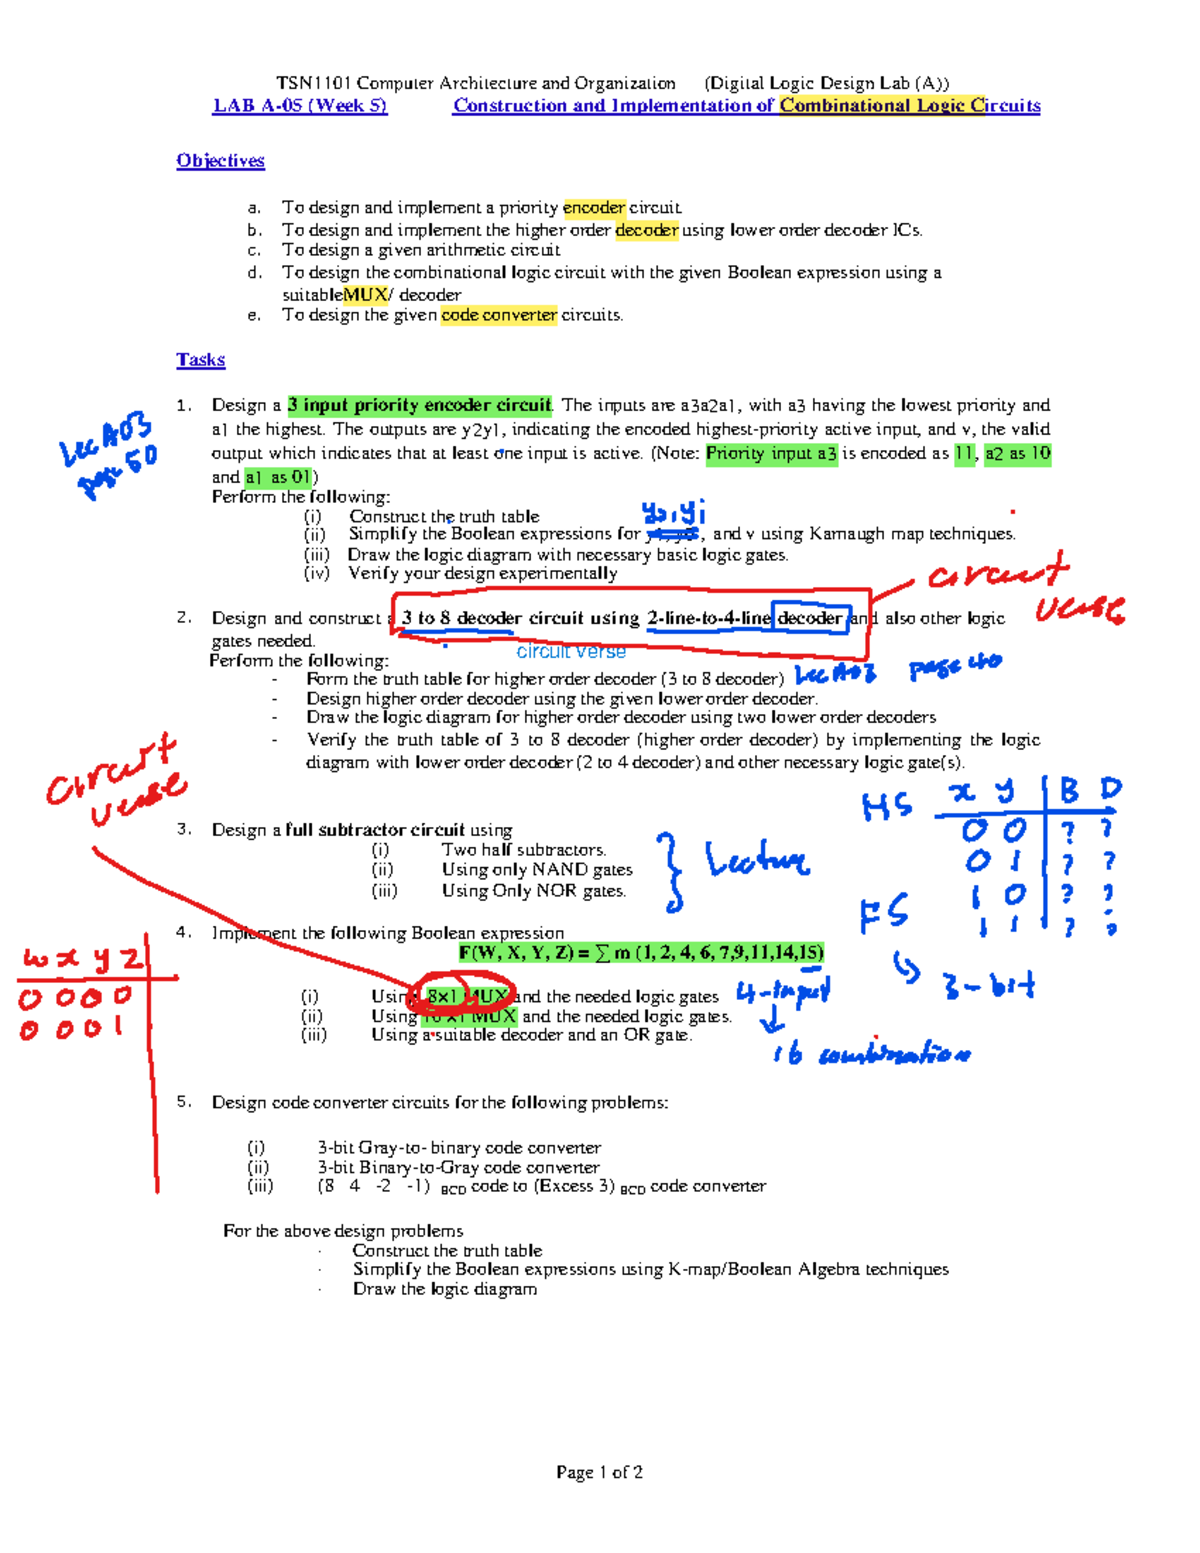 TSN1101 Computer Architecture and Organization (Digital Logic Design Lab (A))
LAB A-05 (Week 5) Construction and Implementation of Combinational Logic Circuits
Objectives
a. To design and implement a priority encoder circuit
b. To design and implement the higher order decoder using lower order decoder ICs.
c. To design a given arithmetic circuit
d. To design the combinational logic circuit with the given Boolean expression using a
suitableMUX/ decoder
e. To design the given code converter circuits.
Tasks
1. Design a 3 input priority encoder circuit. The inputs are a3a2a1, with a3 having the lowest priority and
a1 the highest. The outputs are y2y1, indicating the encoded highest-priority active input, and v, the valid
output which indicates that at least one input is active. (Note: Priority input a3 is encoded as 11, a2 as 10
and a1 as 01)
Lec A03
page 50
Perform the following:
(i) Construct the truth table
(ii) Simplify the Boolean expressions for , and v using Karnaugh map techniques.
(iii) Draw the logic diagram with necessary basic logic gates.
(iv) Verify your design experimentally
circuit
verse
2. Design and construct a 3 to 8 decoder circuit using 2-line-to-4-line decoder and also other logic
gates needed.
circuit verse
Perform the following:
- Form the truth table for higher order decoder (3 to 8 decoder) Lec A03 page 40
- Design higher order decoder using the given lower order decoder.
- Draw the logic diagram for higher order decoder using two lower order decoders
- Verify the truth table of 3 to 8 decoder (higher order decoder) by implementing the logic
diagram with lower order decoder (2 to 4 decoder) and other necessary logic gate(s).
circuit
verse
3. Design a full subtractor circuit using
(i) Two half subtractors.
(ii) Using only NAND gates
(iii) Using Only NOR gates.
Lecture
HS x y B D
0 0 ? ?
0 1 ? ?
1 0 ? ?
1 1 ? ?
FS
3-bit
4. Implement the following Boolean expression
F(W, X, Y, Z) = ∑ m (1, 2, 4, 6, 7,9,11,14,15)
w x y z
0 0 0 0
0 0 0 1
(i) Using 8×1 MUX and the needed logic gates
(ii) Using 16 ×1 MUX and the needed logic gates.
(iii) Using a suitable decoder and an OR gate.
4-input
16 combination
5. Design code converter circuits for the following problems:
(i) 3-bit Gray-to- binary code converter
(ii) 3-bit Binary-to-Gray code converter
(iii) (8 4 -2 -1) BCD code to (Excess 3) BCD code converter
For the above design problems
· Construct the truth table
· Simplify the Boolean expressions using K-map/Boolean Algebra techniques
· Draw the logic diagram
Page 1 of 2